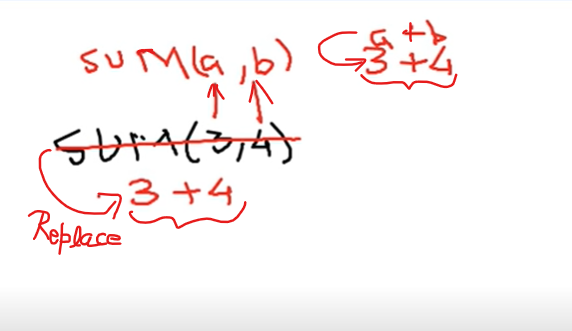 SUM(a,b)
a+b
3+4
SUM(3,4)
3+4
Replace